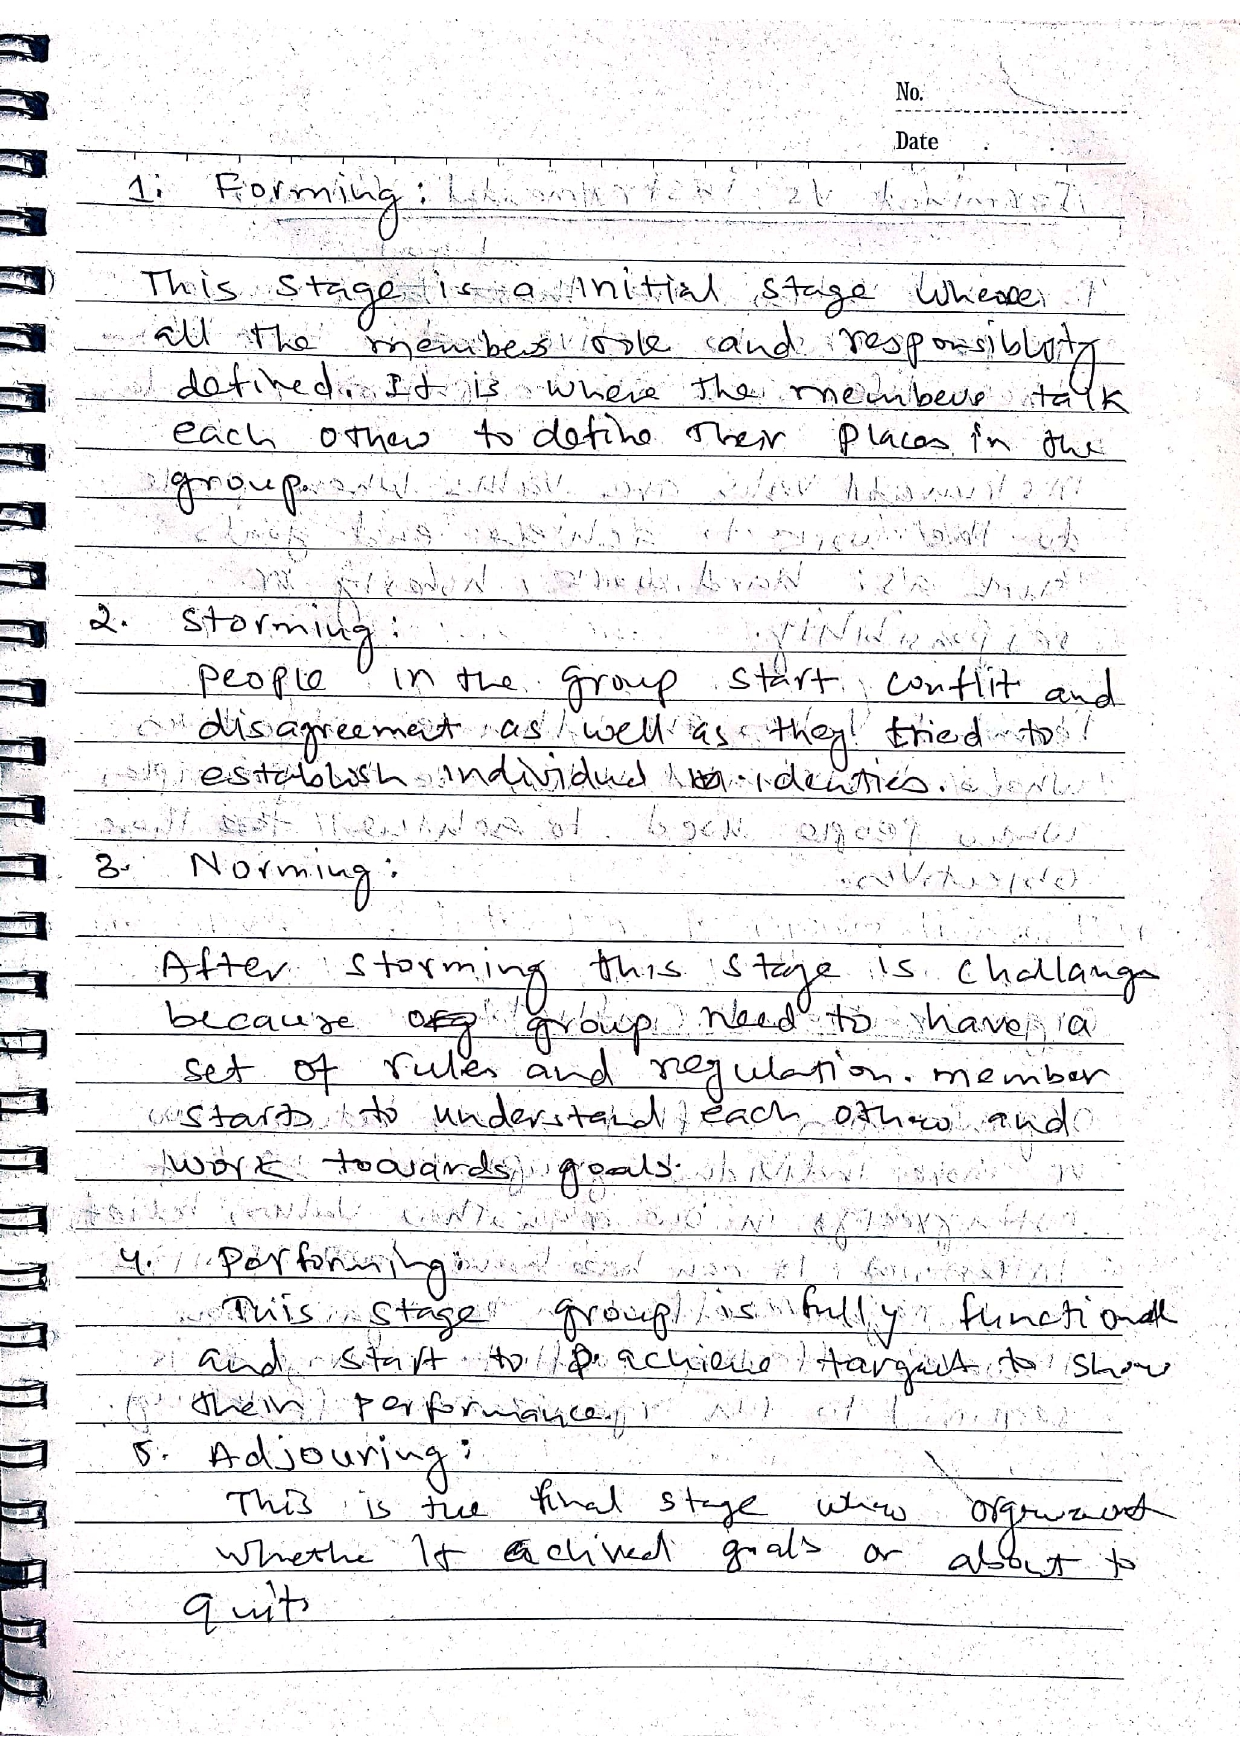 No.
Date
1. Forming:
This stage is a initial stage where
all the members role and responsiblity
defined. It is where the members talk
each other to define their places in the
group.
2. Storming:
people in the group start conflit and
disagreement as well as they tried to
establish individual identies.
3. Norming:
After storming this stage is challang
because group need to have a
set of rules and regulation. member
starts to understand each other and
work towards goals.
4. Performing:
This stage group is fully functional
and start to achieve target to show
their performance.
5. Adjouring:
This is the final stage where
whethe it achived goals or about to
quit